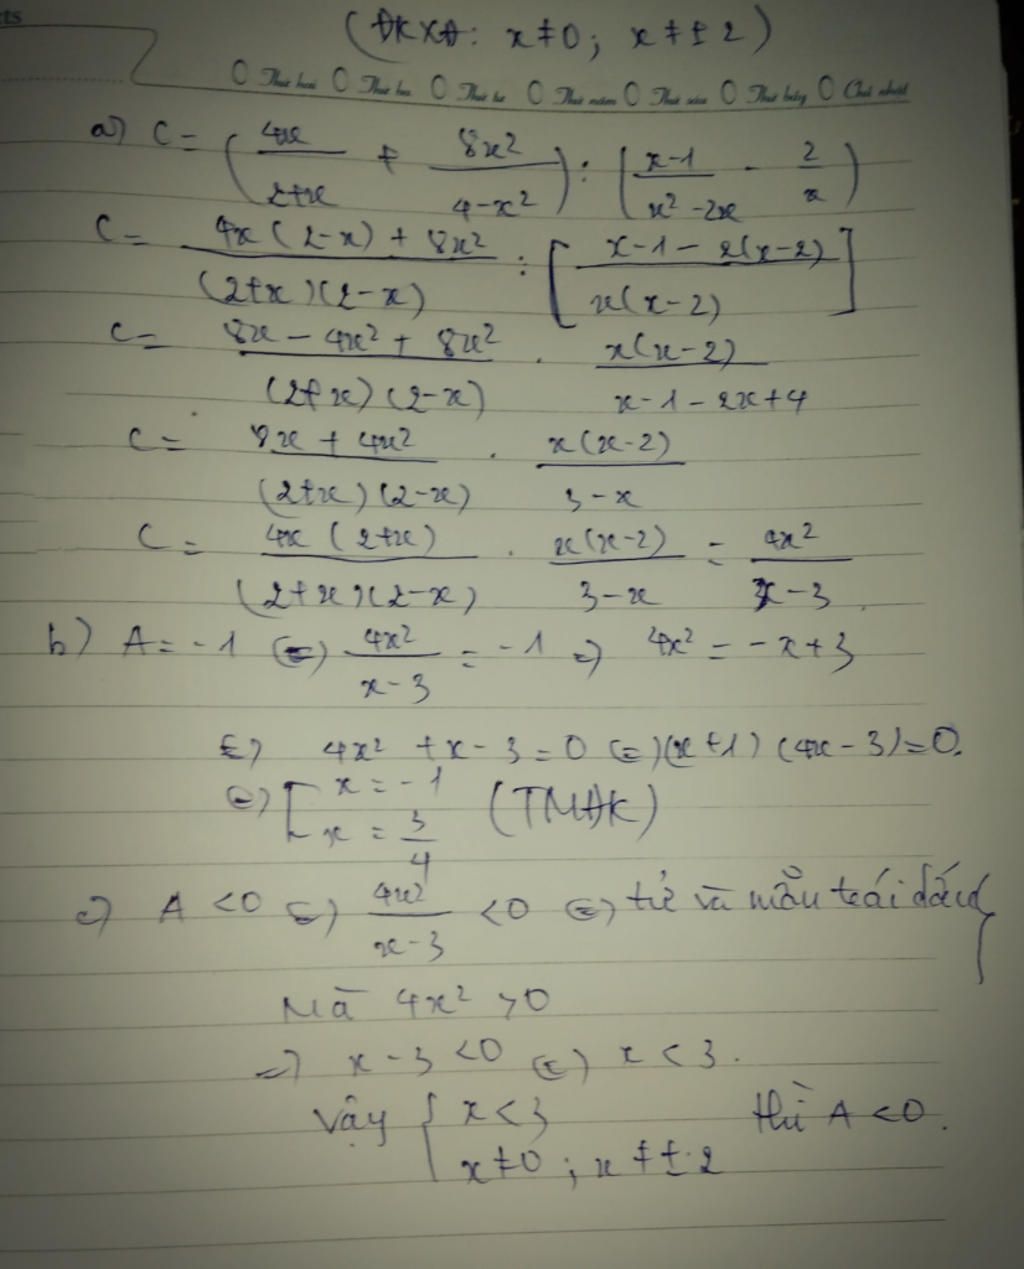 (ĐKXĐ: x≠0; x≠±2)
Thứ hai Thứ ba Thứ tư Thứ năm Thứ sáu Thứ bảy Chủ nhật
a) C = (4x/(2+x) + 8x²/(4-x²)) : ((x-1)/(x²-2x) - 2/x)
C = (4x(2-x) + 8x²)/((2+x)(2-x)) : [(x-1-2(x-2))/(x(x-2))]
C = (8x - 4x² + 8x²)/((2+x)(2-x)) . x(x-2)/(x-1-2x+4)
C = (8x + 4x²)/((2+x)(2-x)) . x(x-2)/(3-x)
C = 4x(2+x)/((2+x)(2-x)) . x(x-2)/(3-x) = 4x²/(x-3)
b) A = -1 <=> 4x²/(x-3) = -1 => 4x² = -x+3
<=> 4x² + x - 3 = 0 <=> (x+1)(4x-3)=0.
<=> [x = -1 x = 3/4 (TMĐK)
c) A <0 <=> 4x²/(x-3) <0 <=> tử và mẫu trái dấu
Mà 4x² >0
=> x-3 <0 <=> x < 3.
Vậy { x < 3 thì A <0.
x≠0; x≠±2